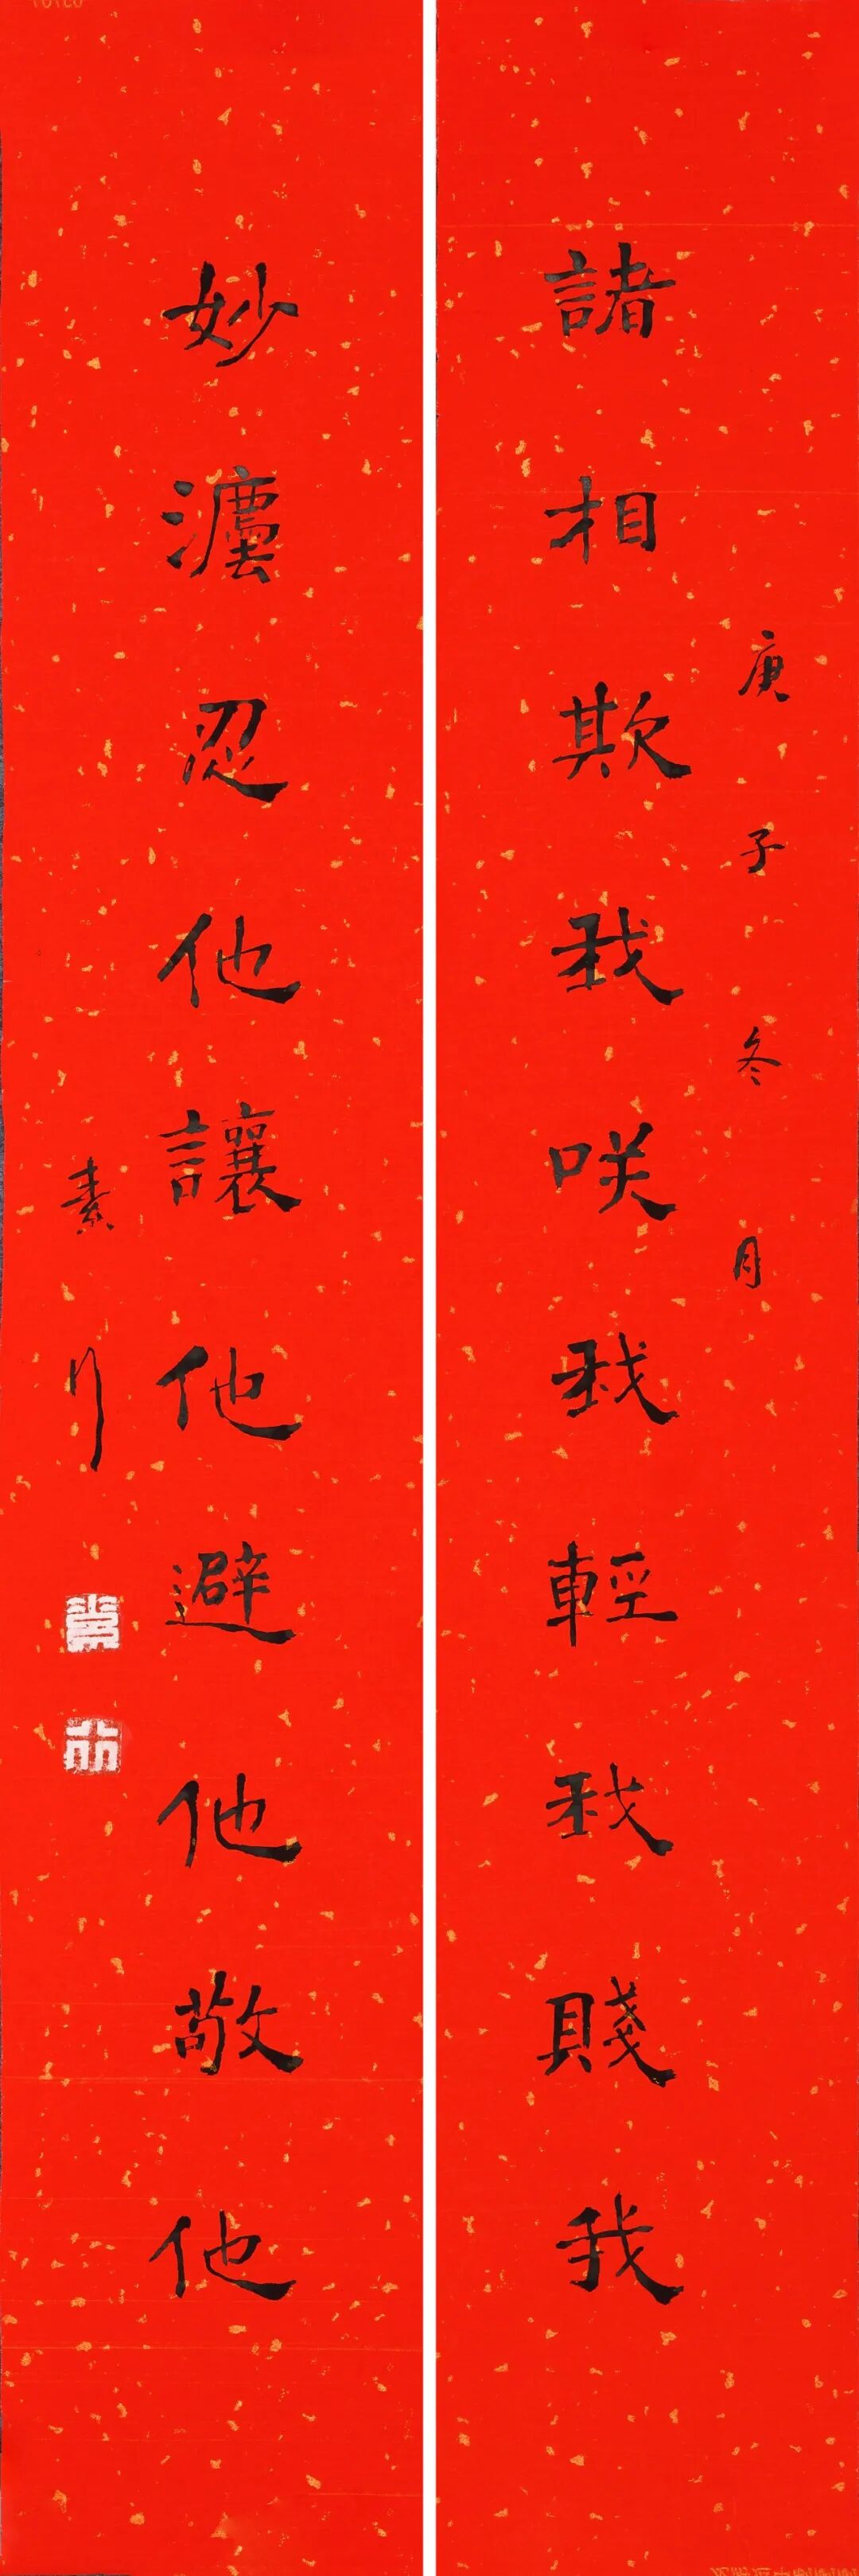 庚子冬月
諸相欺我咲我輕我賤我
妙灋忍他讓他避他敬他
素行
素行